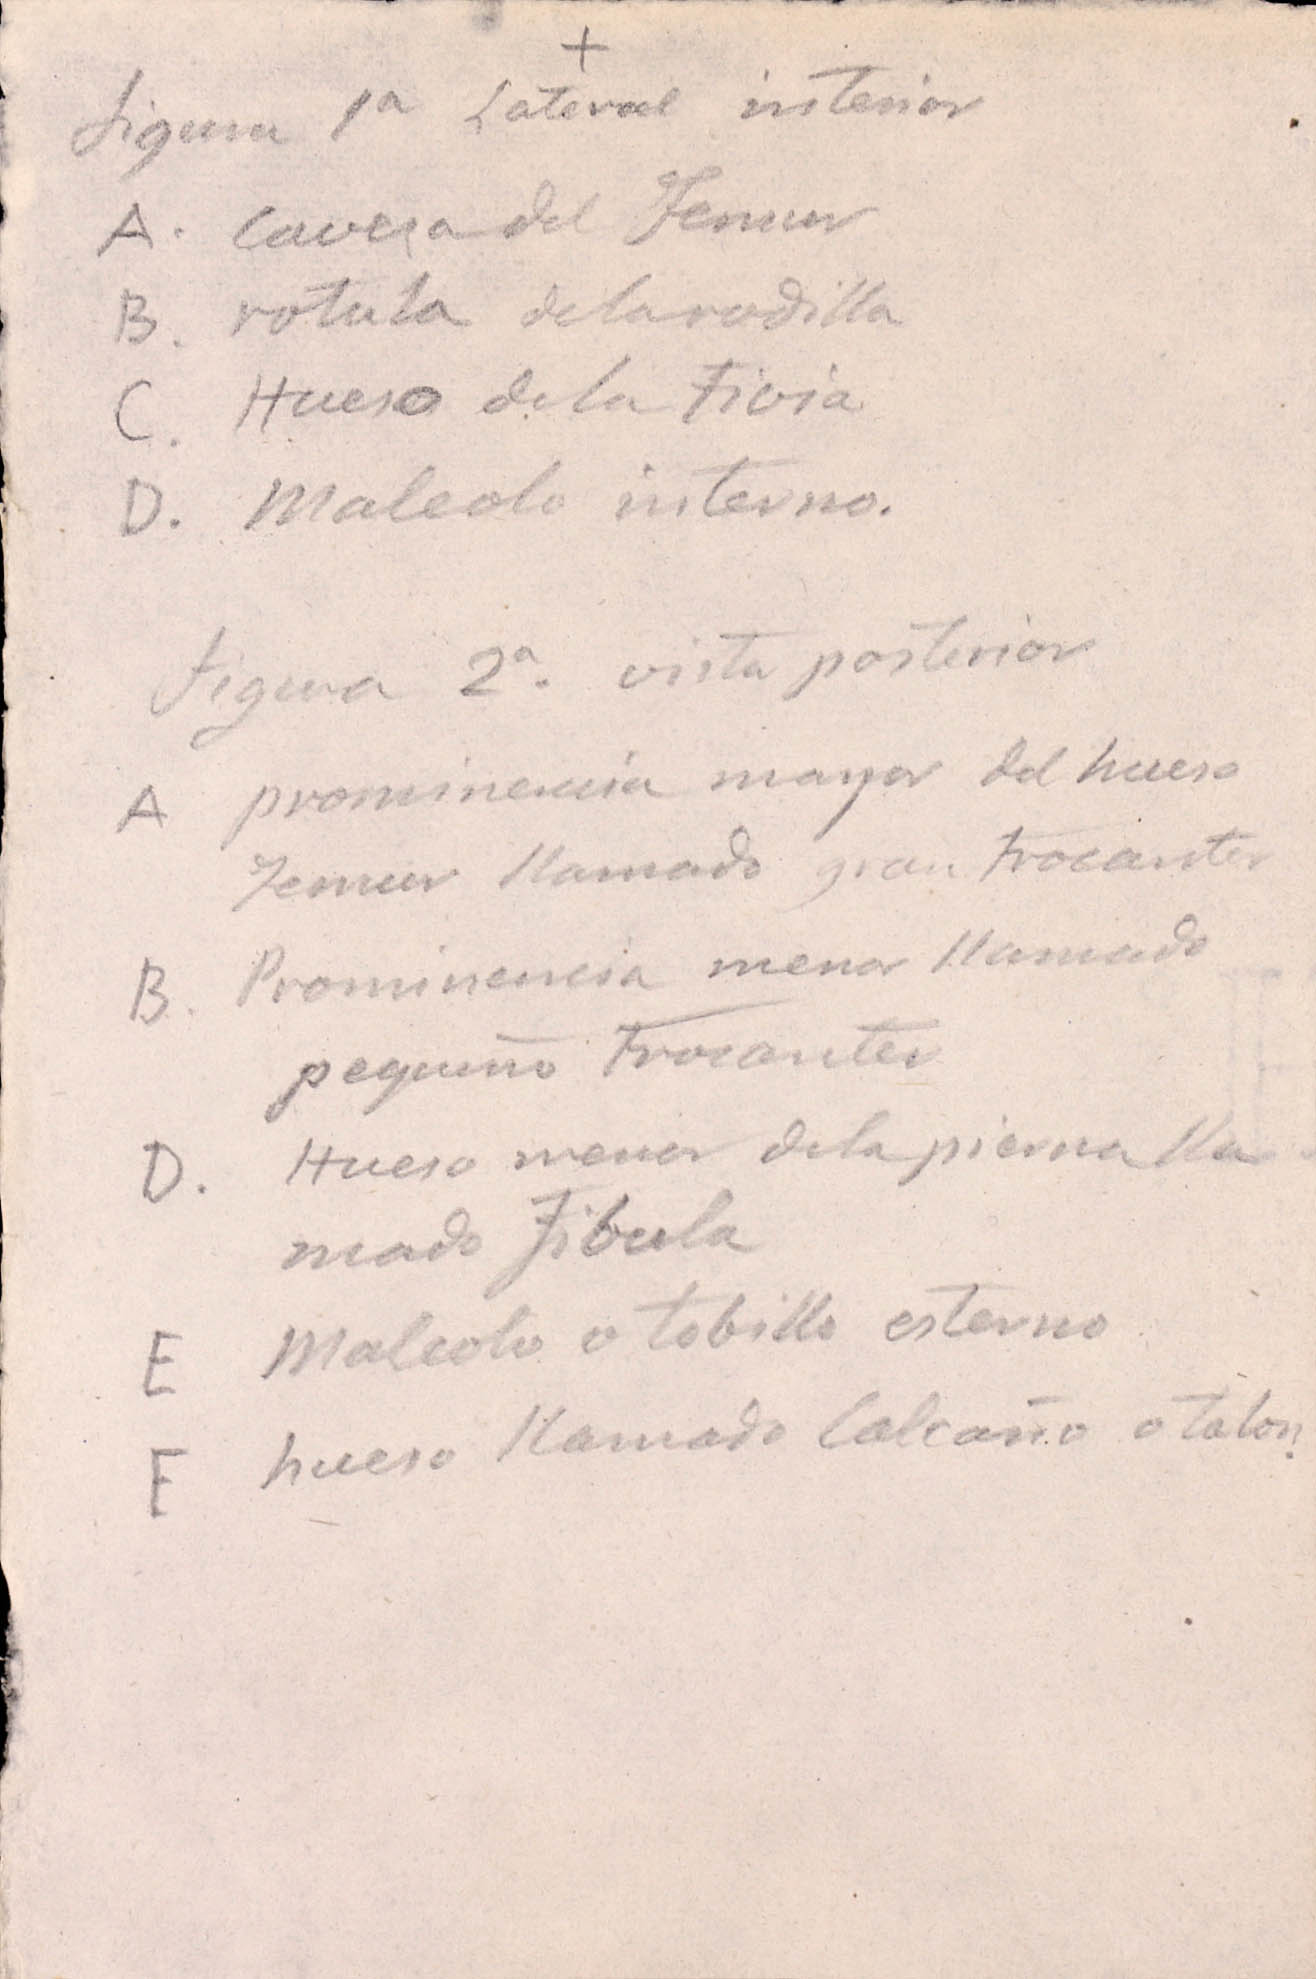 +
Figura 1ª Lateral interior
A. Caveza del Femur
B. rotula de la rodilla
C. Hueso de la Tivia
D. Maleolo interno.
Figura 2ª. vista posterior
A prominencia mayor del hueso
Femur llamado gran trocanter
B. Prominencia menor llamado
pequeño trocanter
D. Hueso menor de la pierna lla
mado Fibula
E Maleolo o tobillo esterno
F hueso llamado Calcaño o talon.